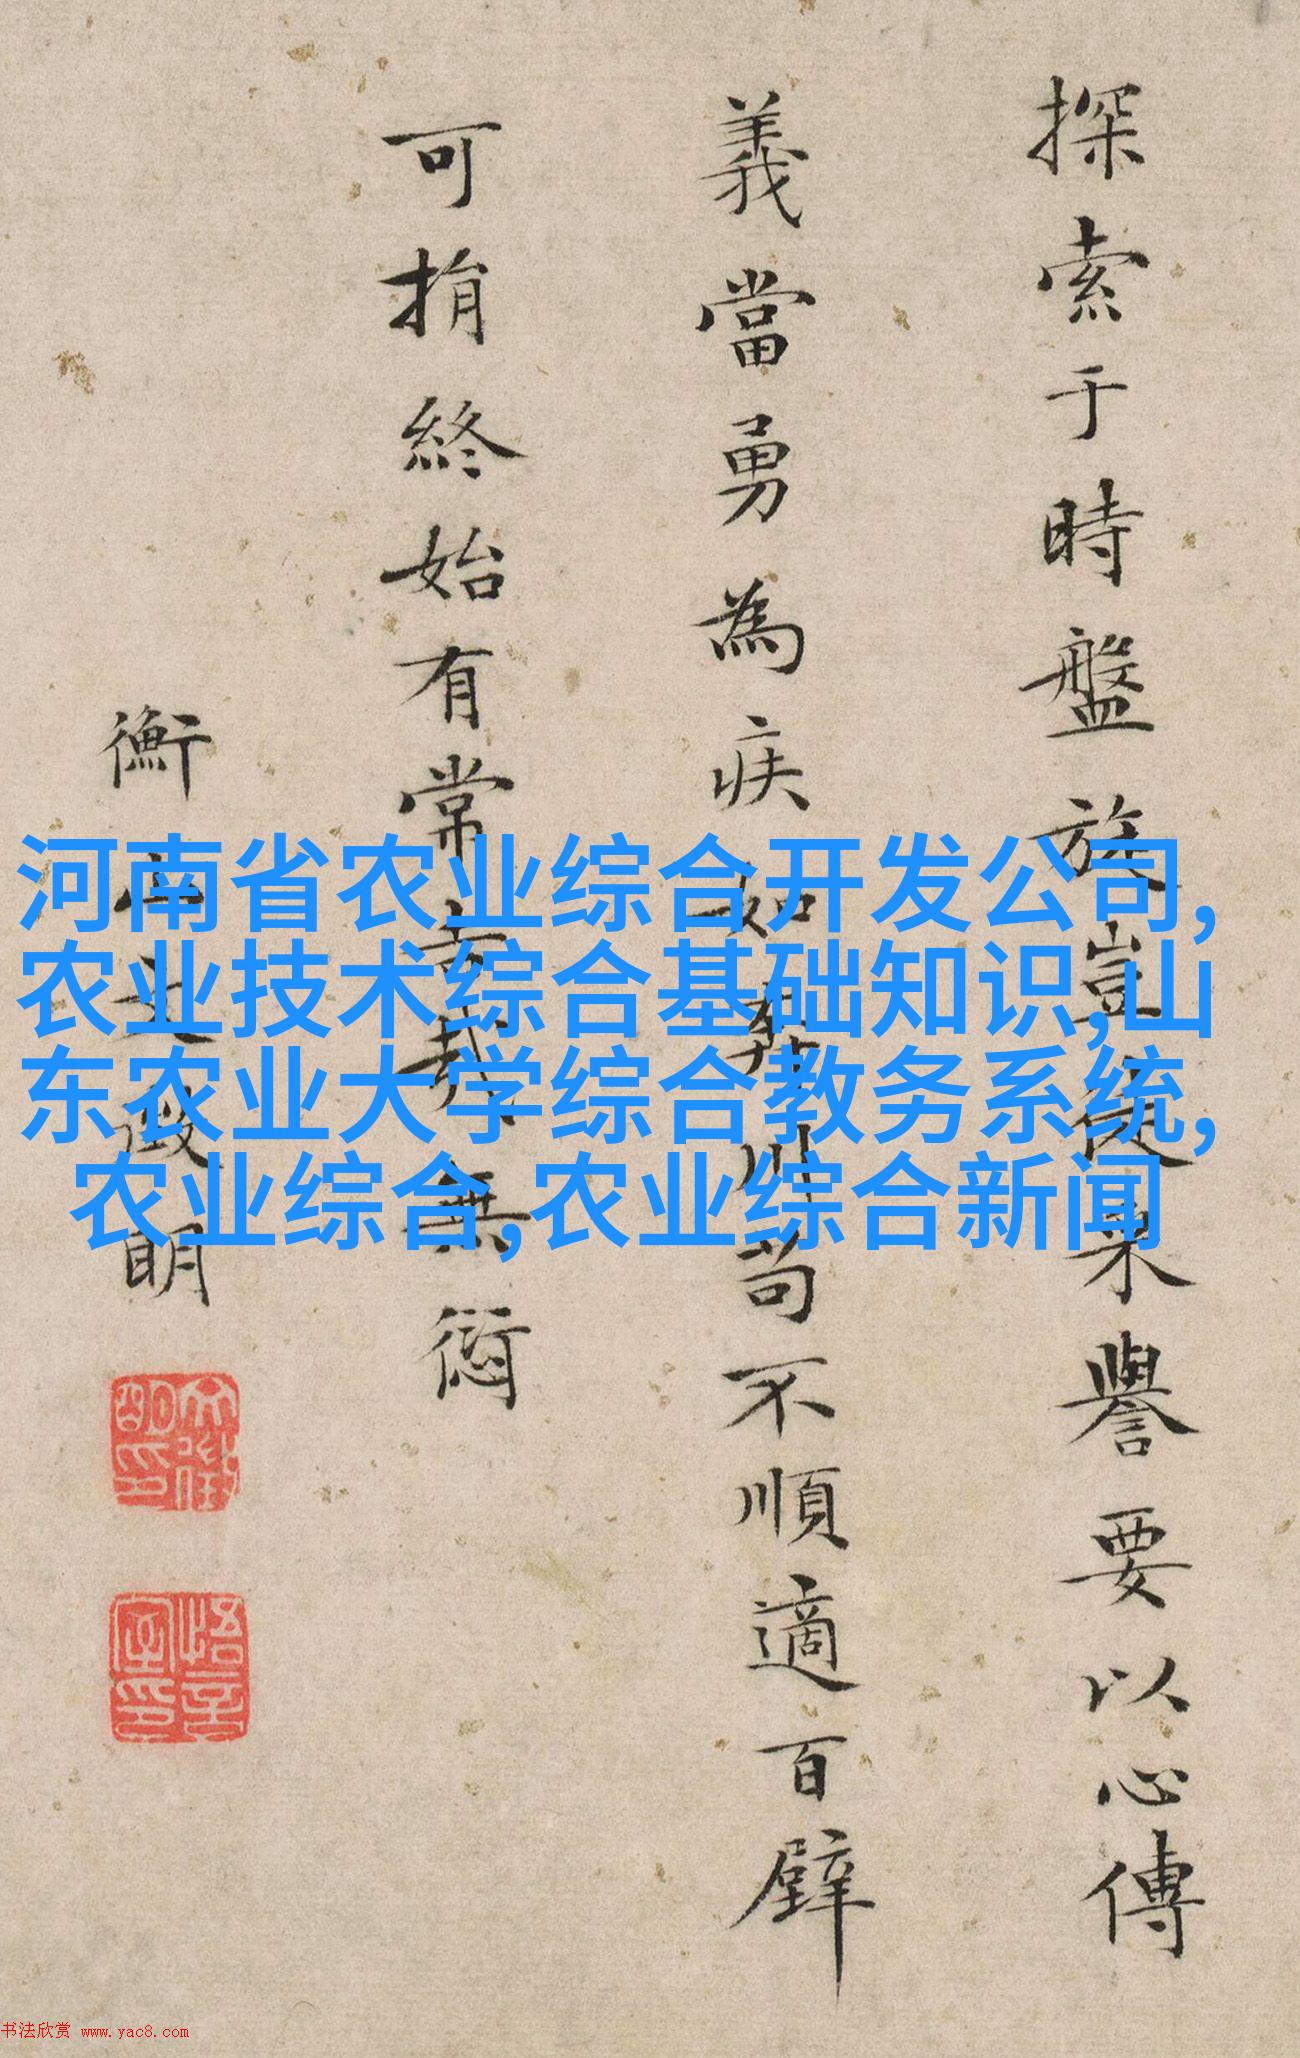 探索于時盤旋豈徒來譽要以心傳
義當勇為疾如奔川苟不順適百璧
可捐終始有常言哉無愆
衡山文徵明
河南省农业综合开发公司,
农业技术综合基础知识,山
东农业大学综合教务系统,
农业综合,农业综合新闻
书法欣赏 www.yac8.com